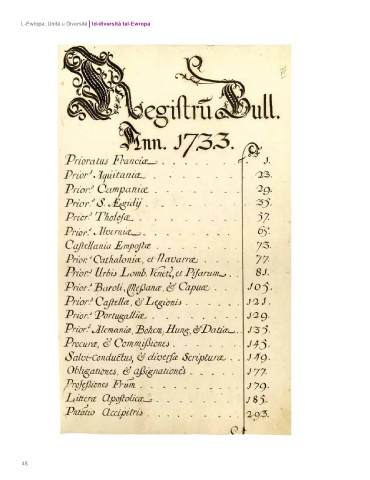 L-Ewropa: Unità u Diversità | Id-diversità tal-Ewropa
Regiſtrū Bull.
Ann. 1733.
Prioratus Franciæ . . . . . . 1.
Prior.s Aquitaniæ . . . . . . 23.
Prior.s Campaniæ . . . . . . 29.
Prior.s S. Ægidij . . . . . . 35.
Prior.s Tholoſæ . . . . . . 57.
Prior.s Alverniæ . . . . . . 65.
Caſtellania Empoſtæ . . . . . . 73.
Prior.s Cathaloniæ, et Navarræ . . . 77.
Prior.s Urbis Lomb. Venet.s, et Piſarum . . 81.
Prior.s Baroli, Meſſanæ, & Capuæ . . . 105.
Prior.s Caſtellæ, & Legionis . . . . 121.
Prior.s Portugalliæ . . . . . . 129.
Prior.s Alemaniæ, Bohem, Hung, & Datiæ . 135.
Procuræ, & Commiſſiones . . . . . 145.
Salvi-conductus, & diverſæ Scripturæ . . 149.
Obligationes, & aſſignationes . . . . 177.
Profeſſiones Frum . . . . . . 179.
Litteræ Apoſtolicæ . . . . . . 185.
Accipitris . . . . . . 293.
48